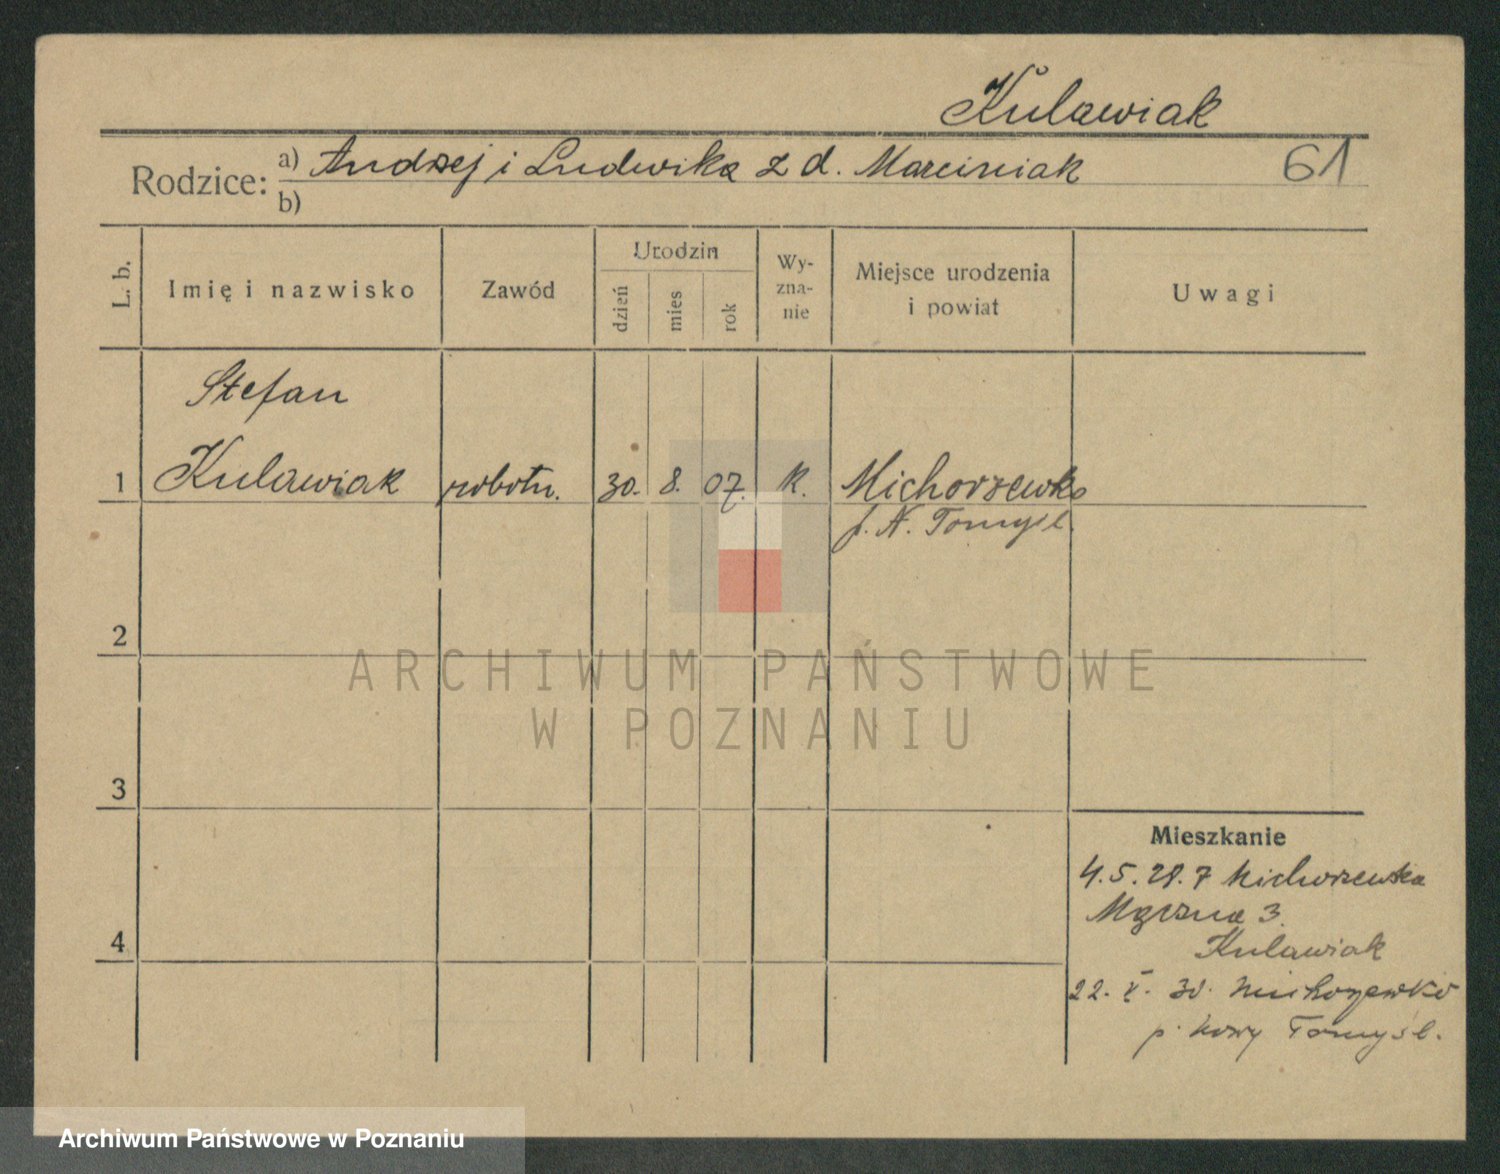 Kulawiak
Rodzice: a) Andrzej i Ludwika z d. Marciniak 61
b)
L. b. Imię i nazwisko Zawód Urodzin dzień mies rok Wyzna-nie Miejsce urodzenia i powiat Uwagi
Stefan
1 Kulawiak robotn. 30. 8. 07. K. Michorzewko
p. N. Tomyśl.
2
ARCHIWUM PAŃSTWOWE
W POZNANIU
3
Mieszkanie
4.5.28. z Michorzewka
Mączna 3.
4 Kulawiak
22. V. 30. Michorzewko
p. Nowy Tomyśl.
Archiwum Państwowe w Poznaniu